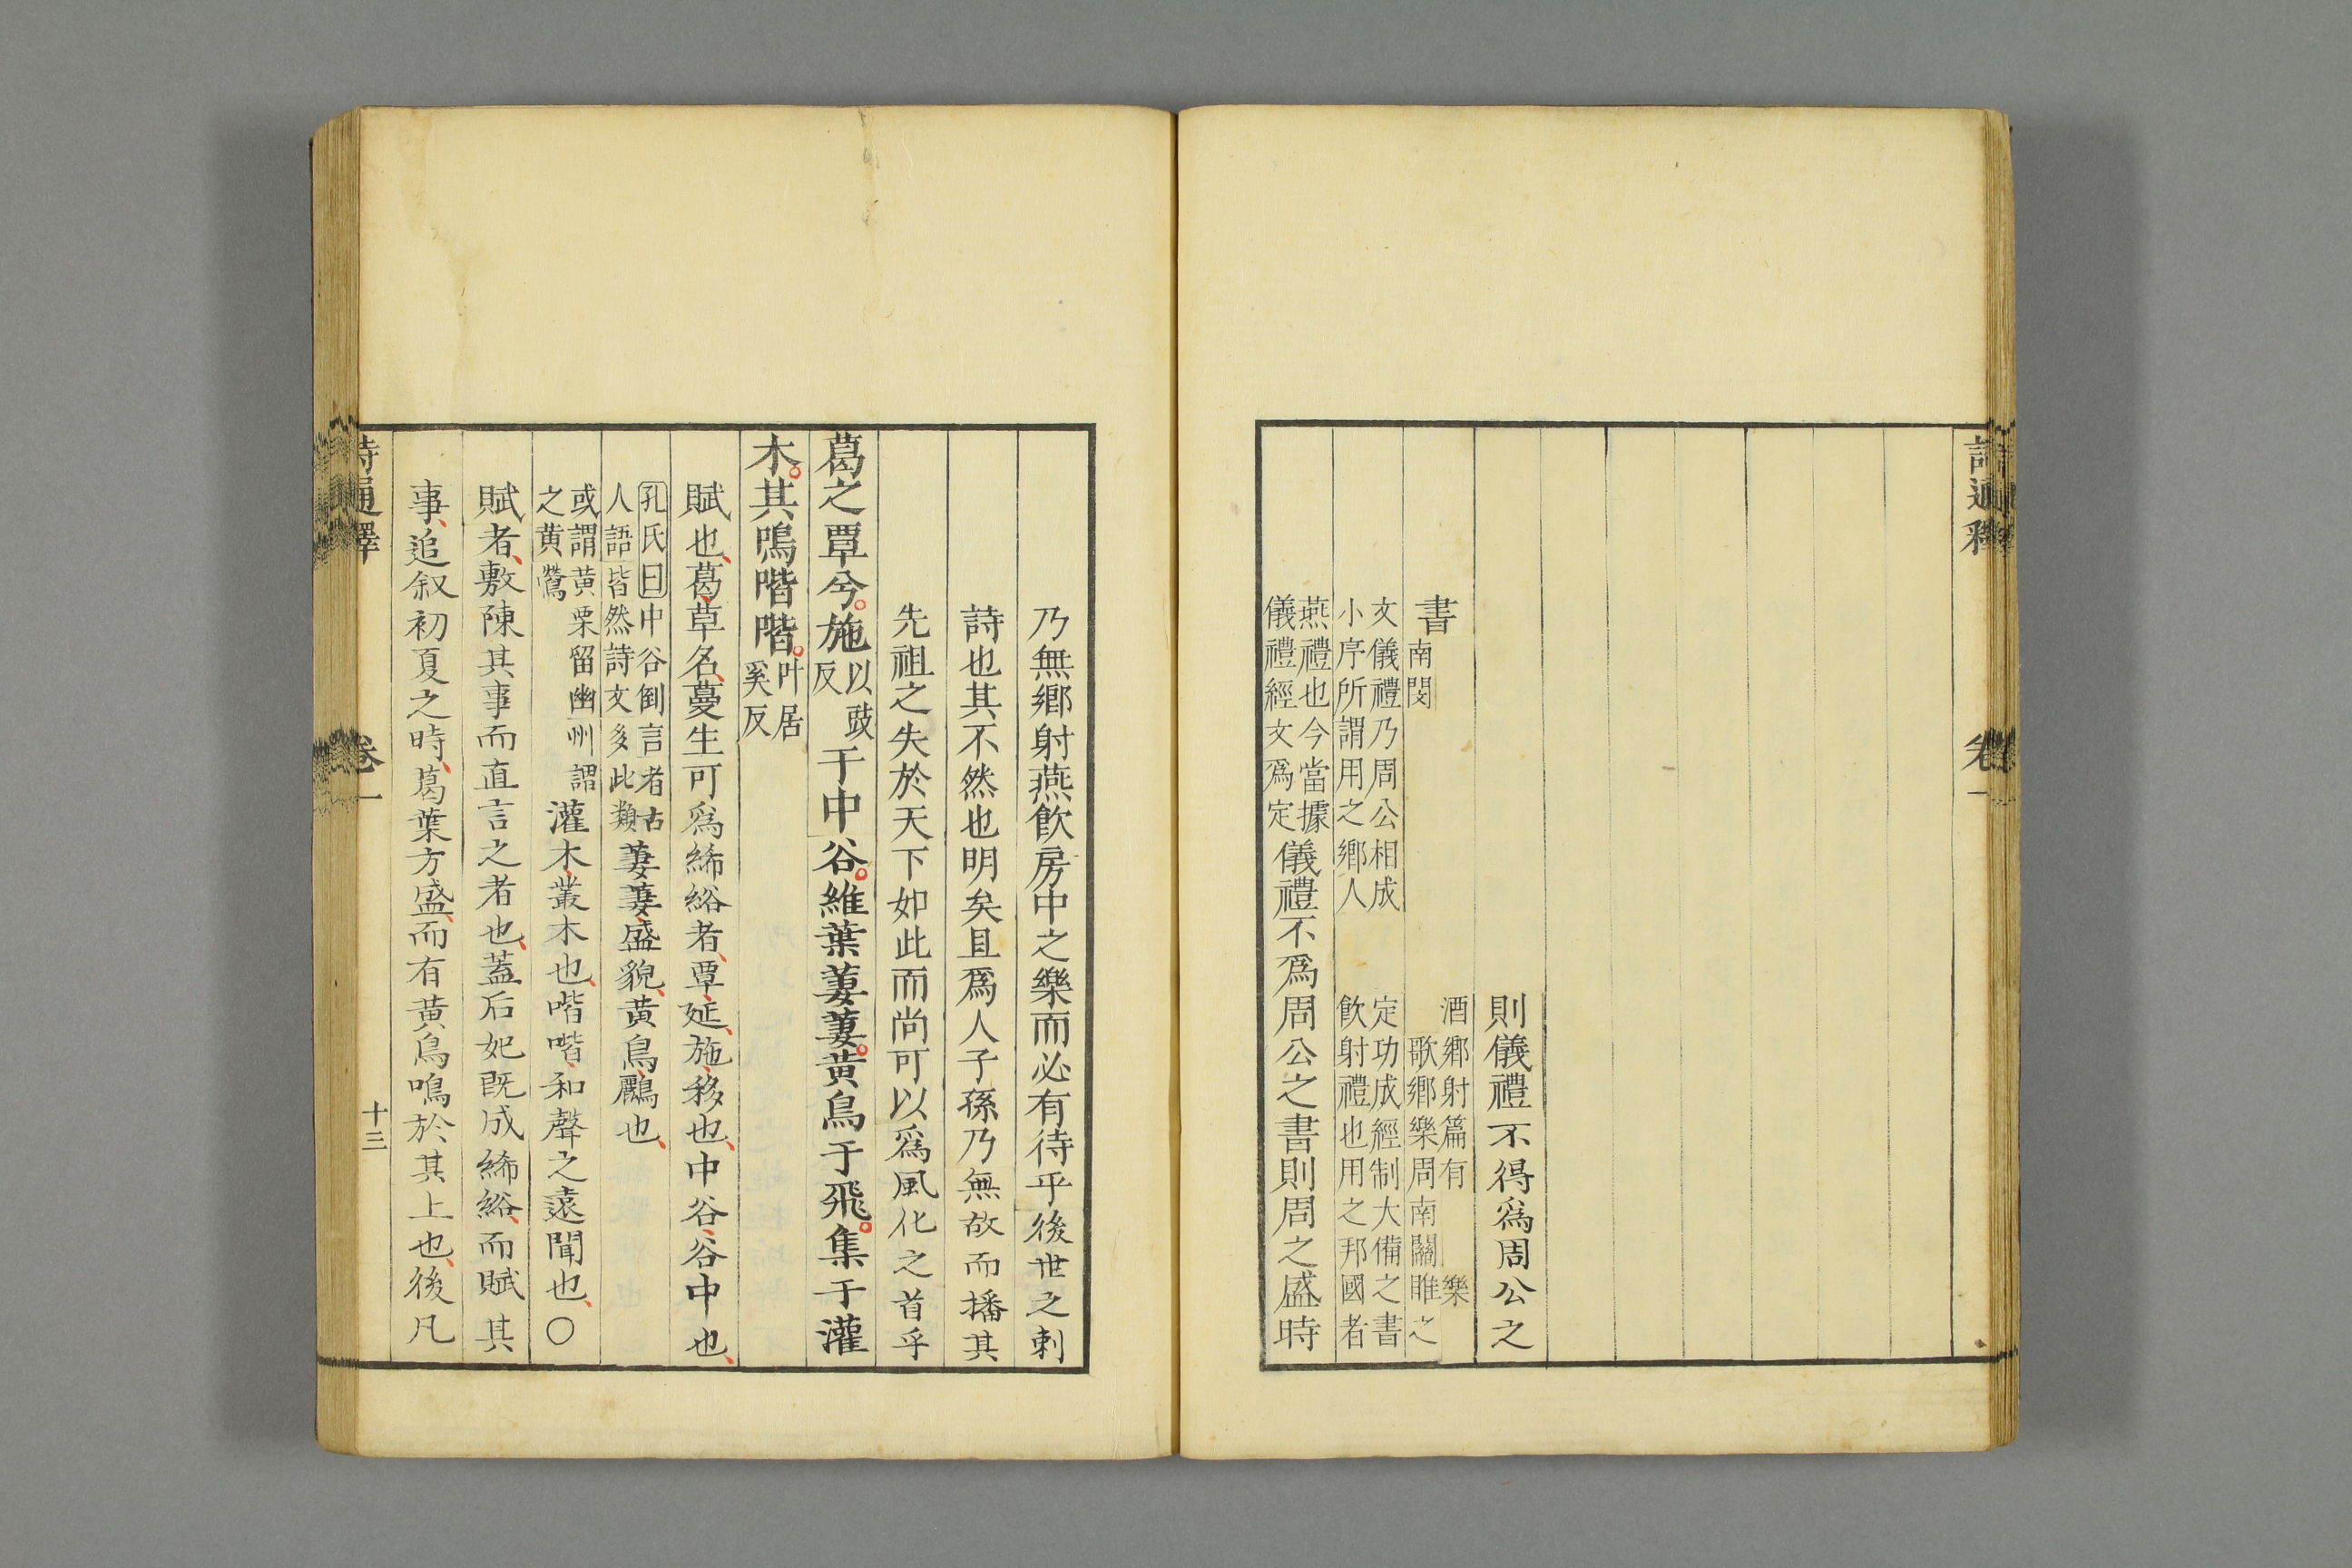 詩通釋
卷一
則儀禮不得爲周公之
書
酒鄉射篇有樂
南関
歌鄉樂周南關雎之
文儀禮乃周公相成
定功成經制大備之書
小序所謂用之鄉人
飲射禮也用之邦國者
燕禮也今當據
儀禮經文爲定
儀禮不爲周公之書則周之盛時
乃無鄉射燕飲房中之樂而必有待乎後世之刺
詩也其不然也明矣且爲人子孫乃無故而播其
先祖之失於天下如此而尚可以爲風化之首乎
葛之覃兮施以豉反于中谷維葉萋萋黃鳥于飛集于灌
木其鳴喈喈叶居奚反
賦也葛草名蔓生可爲絺綌者覃延施移也中谷谷中也
孔氏曰中谷倒言者古
人語皆然詩文多此類
萋萋盛貌黃鳥鸝也
或謂黃栗留幽州謂
之黃鸎
灌木叢木也喈喈和聲之遠聞也〇
賦者敷陳其事而直言之者也蓋后妃既成絺綌而賦其
事追叙初夏之時葛葉方盛而有黃鳥鳴於其上也後凡
詩通釋
卷一
十三